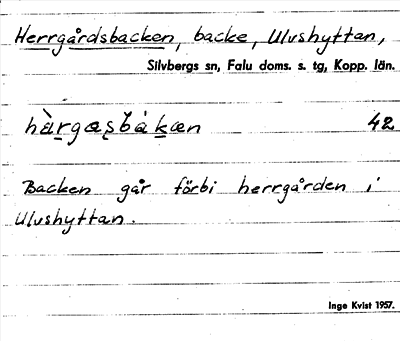 Herrgårdsbacken, backe, Ulvshyttan,
Silvbergs sn, Falu doms. s. tg, Kopp. län.
42
Backen går förbi herrgården i
Ulvshyttan.
Inge Kvist 1957.